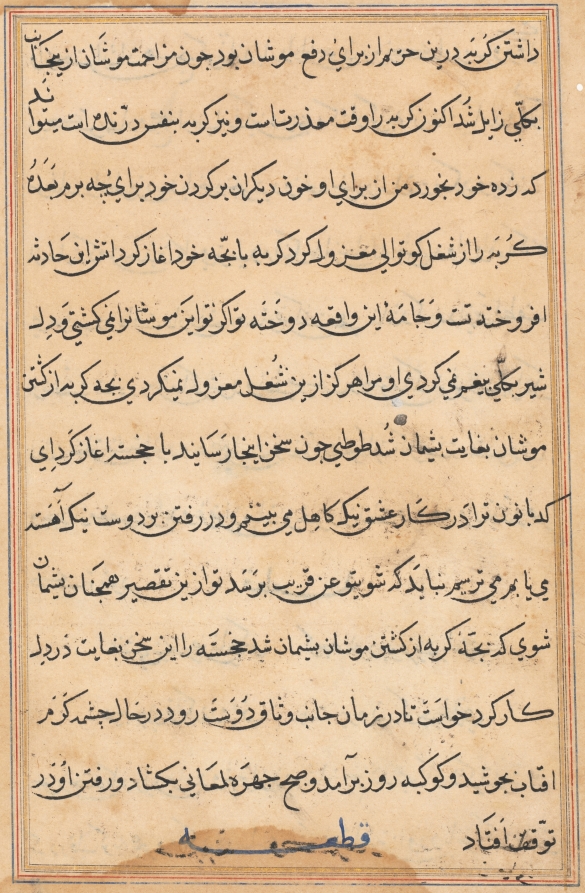 داشتن کربه درین حریم از برای دفع موشان بود چون مزاحمت موشان ازینجا
بکلی زایل شد اکنون کربه را وقت معذرت است و نیز کربه بنفس درنده است میتواند
که زده خود بخورد من از برای او خون دیکران بر کردن خود برای چه برم بعده
کربه را از شغل کوتوالی معزول کرد کربه با بچه خود اغاز کرد اتش این حادثه
افروخته تست و جامهٔ این واقعه دوخته تو اکر تو این موشانرا نمی کشتی و دل
شیر بکلی بیغم نمی کردی او مرا هرکز ازین شغل معزول نمیکردی بچه کربه از کشتن
موشان بغایت بشیمان شد طوطی چون سخن اینجا رسانید با خجسته اغاز کرد ای
کدبانو ترا در کار عشق نیک کاهل می بینم و در رفتن بر دوست نیک آهسته
می یابم می ترسم نباید که شوی تو عن قریب برسد تو ازین تقصیر همچنان بشیمان
شوی که بچهٔ کربه از کشتن موشان بشیمان شد خجسته را این سخن بغایت در دل
کار کرد خواست تا در زمان جانب وثاق دوست رود در حال چشمه کرم
افتاب بجوشید و کوکبه روز برآمد و صبح چهره لمعانی بکشاد و رفتن او در
توقف افتاد قطعه